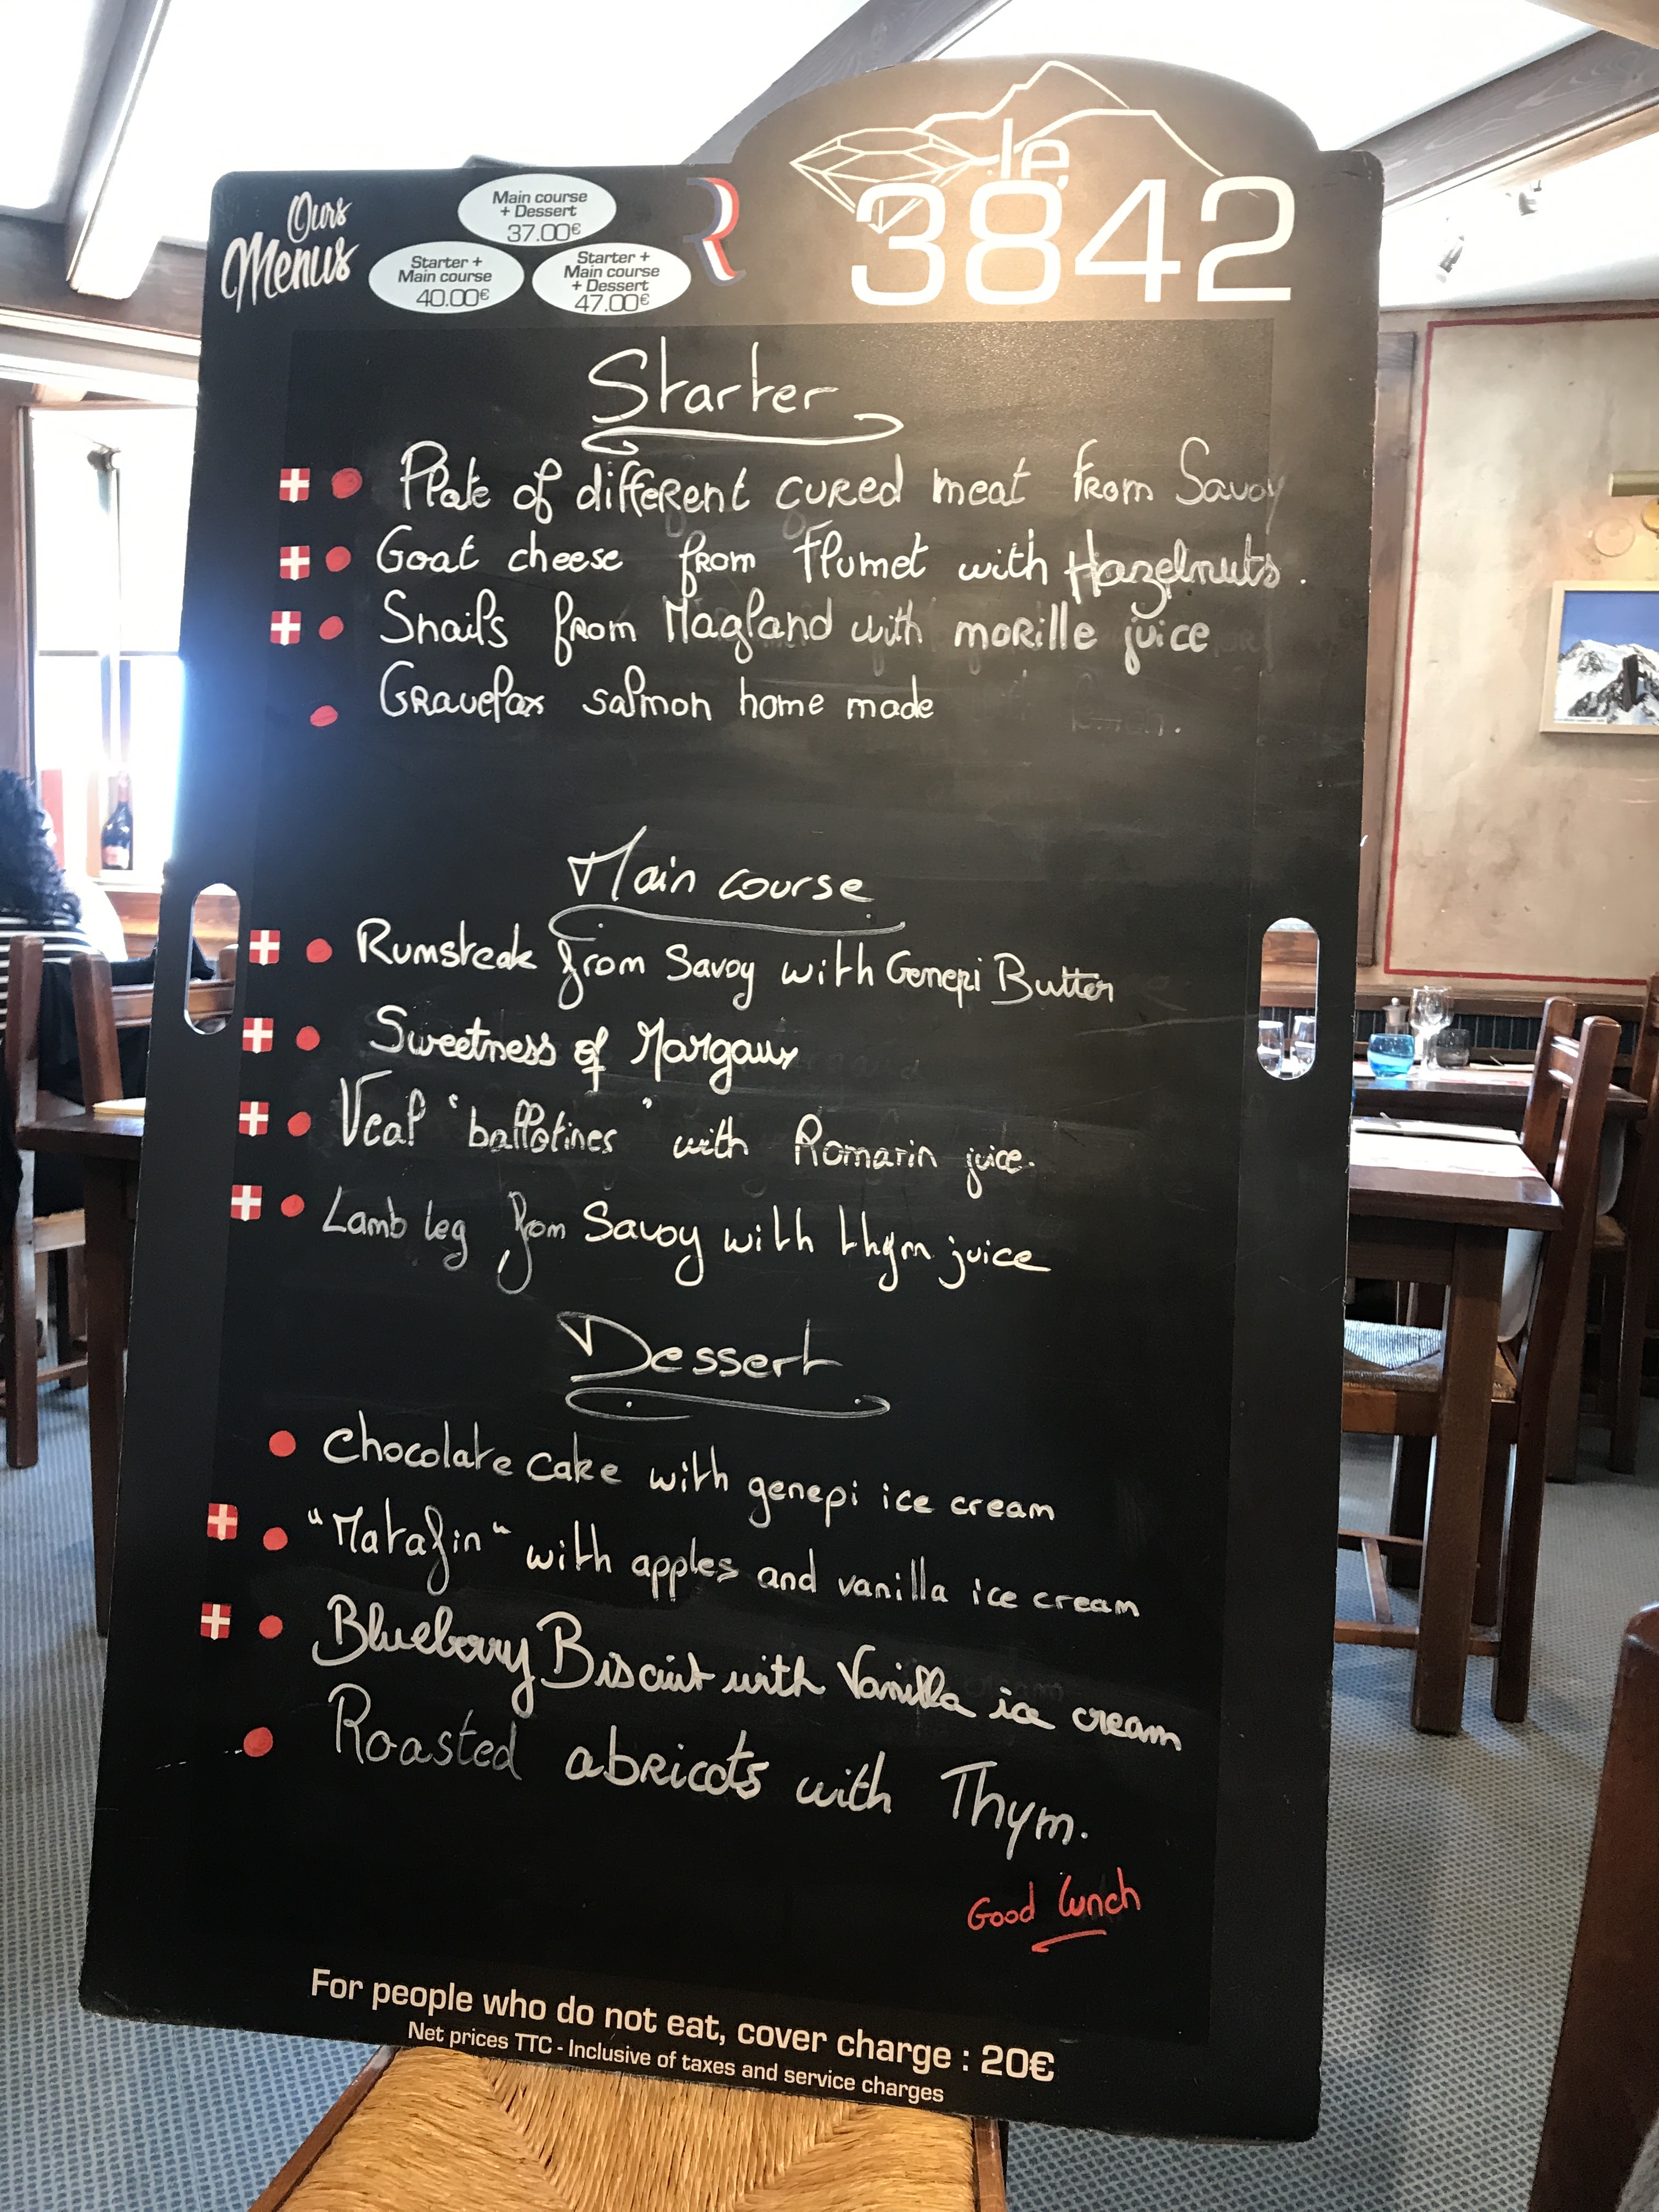 Ours
Menus
Main course
+ Dessert
37.00€
Starter +
Main course
40.00€
Starter +
Main course
+ Dessert
47.00€
R
le
3842
Starter
Plate of different cured meat from Savoy
Goat cheese from Flumet with Hazelnuts.
Snails from Magland with morille juice
Gravelax salmon home made
Main course
Rumsteak from Savoy with Genepi Butter
Sweetness of Margaux
Veal "ballotines" with Romarin juice.
Lamb leg from Savoy with thym juice
Dessert
Chocolate cake with genepi ice cream
"Matafin" with apples and vanilla ice cream
Blueberry Biscuit with Vanilla ice cream
Roasted abricots with Thym.
Good lunch
For people who do not eat, cover charge : 20€
Net prices TTC - Inclusive of taxes and service charges